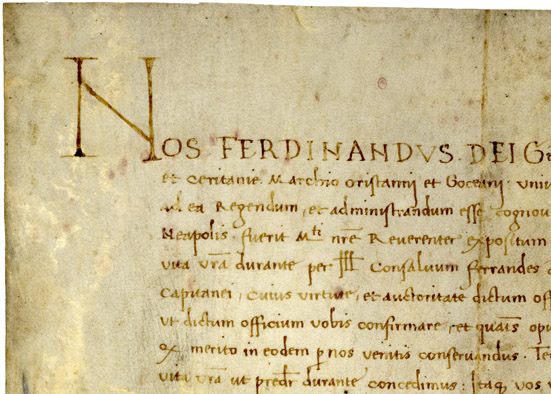 NOS FERDINANDVS DEI G
et Ceritanie Marchio Oristanij et Goceani univ
ad ea Regendum, et administrandum esse cognou
Neapolis fuerit Mti nrē Reverenter expositum
vita vrā durante per Ill Consaluum Ferrandes
Capuanei, Cuius virtute, et auctoritate dictum off
ut dictum officium vobis confirmare, et quatīs opu
ex merito in eodem p nos veritis conservandus. Te
vita vrā ut predr durante concedimus: Itaq vos v